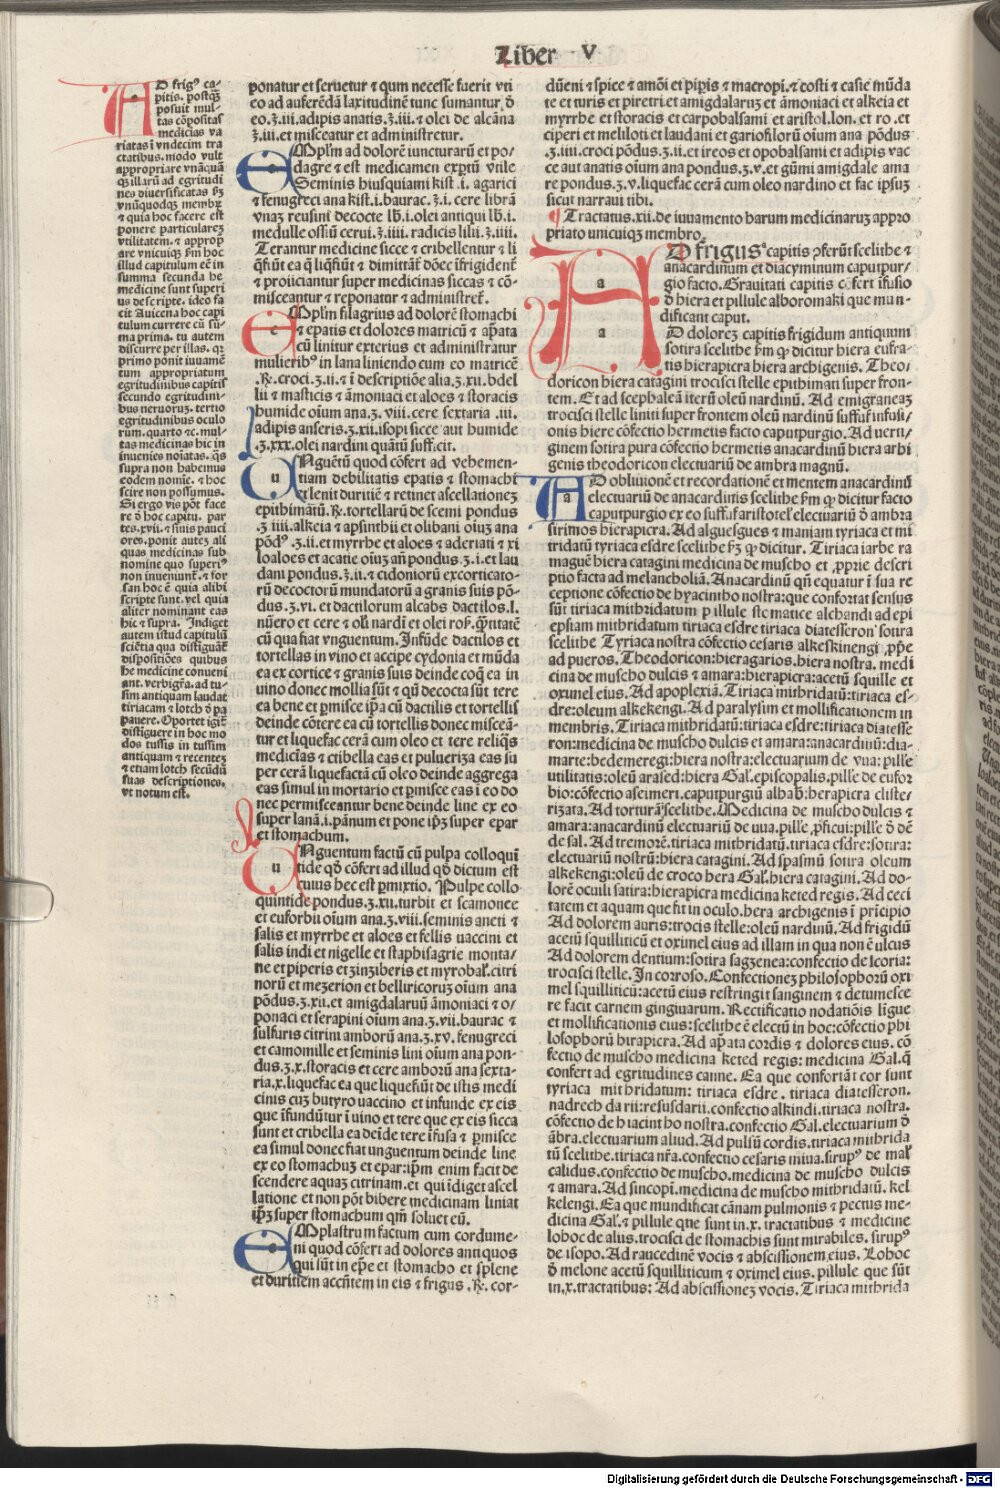 Liber V
AD frigꝰ ca-
pitis. postqȝ
posuit mul-
tas cōpositas
medicias va
riatas ī vndecim tra
ctatibus. modo vult
appropriare vnāquā
qȝ illarū ad egritudi
nes diuersificatas fȝ
vnūquodqȝ membȝ
⁊ quia hoc facere est
ponere particularez
vtilitatem. ⁊ approp
are vnicuiqȝ ſm hoc
illud capitulum eē in
summa secunda he
medicine sunt superi
us descripte. ideo fa
cit Auicena hoc capi
tulum currere cū sū-
ma prima. tu autem
discurre per illas. qꝛ
primo ponit iuuamē
tum appropriatum
egritudinibus capitis
secundo egritudini-
bus neruoꝝ. tertio
egritudinibus oculo
rum. quarto ⁊c. mul-
tas medicinas hic in
inuenies noīatas. qs
supra non habemus
eodem nomīe. ⁊ hoc
scire non possumus.
Si ergo vis pōt face
re ð hoc capitu. par
tes. xvii. ⁊ suis pauci
ores. ponit auteȝ ali
quas medicinas sub
nomine quo superiꝰ
non inueniunt̄. ⁊ for
san hoc ē quia alibi
scripte sunt. vel quia
aliter nominant eas
hic ⁊ supra. Indiget
autem istud capitulū
sciētia qua distīguāt̄
dispositiōes quibus
he medicine conueni
ant. verbigr̄a. ad tu-
sim antiquam laudat
tiriacam ⁊ lotch ð pa
pauere. Oportet igit̄
distīguere in hoc mo
dos tussis in tussim
antiquam ⁊ recentez
⁊ etiam lotch secūdū
suas descriptiones.
vt notum est.
ponatur et seruetur ⁊ qum necesse fuerit vti
eo ad auferēdā laxitudinē tunc sumantur. ð
eo.ȝ.iii. adipis anatis.ȝ.iii.⁊ olei de alcāna
ȝ.iii. et misceatur et administretur.
EMplm̄ ad dolorē iuncturarū et po/
dagre ⁊ est medicamen exprtū vtile
Seminis hiusquiami kist .i. agarici
⁊ fenugreci ana kist.i. baurac.ȝ.i. cere librā
vnaȝ reusini decocte lb̄.i. olei antiqui lb̄.i.
medulle ossiū cerui.ȝ.iiii. radicis lilii.ȝ.iiii.
Terantur medicine sicce ⁊ cribellentur ⁊ li
q̄fiūt ea q̄ liq̄fiūt ⁊ dimittāt̄ dōec īfrigident̄
⁊ proiiciantur super medicinas siccas ⁊ cō-
misceantur ⁊ reponatur ⁊ administret̄.
EMplm̄ filagrius ad dolorē stomachi
⁊ epatis et dolores matricū ⁊ ap̄ata
cū linitur exterius et administratur
mulieribꝰ in lana liniendo cum eo matricē
.℞. croci.ȝ.ii.⁊ ī descriptiōe alia.ȝ.xii. bdel
lii ⁊ masticis ⁊ āmoniaci et aloes ⁊ storacis
humide oīum ana.ȝ. viii. cere sextaria .iii.
adipis anseris.ȝ.xii. isopi sicce aut humide
.ȝ.xxx. olei nardini quātū suff.cit.
VNguētū quod cōfert ad vehemen-
tiam debilitatis epatis ⁊ stomachi
⁊ lenit duritiē ⁊ retinet ascellationeȝ
epithimātū.℞. tortellarū de scemi pondus
.ȝ iiii. alkeia ⁊ apsinthii et olibani oīuȝ ana
pōdꝰ .ȝ.ii. et myrrhe et aloes ⁊ aderiati ⁊ xi
loaloes et acatie oīuȝ an̄ pondus.ȝ.i. et lau
dani pondus.ȝ.ii. ⁊ cidoniorū excorticato-
rū decoctorū mundatorū a granis suis pō-
dus.ȝ.vi. et dactilorum alcahs dactilos.l.
nūero et cere ⁊ olī nardī et olei ros̄. q̄ntitatē
cū qua fiat vnguentum. Infūde dactilos et
tortellas in vino et accipe cydonia et mūda
ea ex cortice ⁊ granis suis deinde coq̄ ea in
vino donec mollia sūt ⁊ qū decocta sūt tere
ea bene et p̄misce ip̄a cū dactilis et tortellis
deinde cōtere ea cū tortellis donec misceā-
tur et liquefac cerā cum oleo et tere reliq̄s
medicīas ⁊ cribella eas et pulueriza eas su
per cerā liquefactā cū oleo deinde aggrega
eas simul in mortario et p̄misce eas ī eo do
nec permisceantur bene deinde line ex eo
super lanā.i. pānum et pone ip̄ȝ super epar
et stomachum.
VNguentum factū cū pulpa colloquī
tide qð cōfert ad illud qð dictum est
cuius hec est p̄mixtio. Pulpe collo
quintide pondus.ȝ.xii. turbit et scamonee
et euforbii oīum ana.ȝ.viii. seminis aneti ⁊
salis et myrrhe et aloes et fellis vaccini et
salis indi et nigelle et staphisagrie monta/
ne et piperis et zinziberis et myrobal̄. citri
norū et mezerion et belliricoruȝ oīum ana
pōdus.ȝ.xii. et amigdalaruȝ āmoniaci ⁊ o/
ponaci et serapini oīum ana.ȝ.vii. baurac ⁊
sulfuris citrini amborū ana.ȝ.xv. fenugreci
et camomille et seminis lini oīum ana pon-
dus.ȝ.x. storacis et cere amborū ana sexta-
ria.x. liquefac ea que liquefiūt de istis medi
cinis cuȝ butyro vaccino et infunde ex eis
que īfundūtur ī vino et tere que ex eis sicca
sunt et cribella ea deīde tere īfusa ⁊ p̄misce
ea simul donec fiat unguentum deinde line
ex eo stomachuȝ et epar:ip̄m enim facit de
scendere aquaȝ citrinam. et qui īdiget ascel
latione et non pōt bibere medicinam liniat
ip̄ȝ super stomachum qm̄ soluet eū.
EMplastrum factum cum cordume-
ni quod cōfert ad dolores antiquos
qui sūt in ep̄e et stomacho et splene
et duritiem accn̄tem in eis ⁊ frigus .℞. cor-
dūeni ⁊ spice ⁊ amōi et pip̄is ⁊ macropi. ⁊ costi ⁊ casie mūda
te et turis et piretri et amigdalaruȝ et āmoniaci et alkeia et
myrrhe et storacis et carpobalsami et aristol.lon. et ro .et
ciperi et meliloti et laudani et gariofilorū oīum ana pōdus
.ȝ.iiii. croci pōdus.ȝ.ii. et ireos et opobalsami et adipis vac
ce aut anatis oīum ana pondus.ȝ.v. et gūmi amigdale ama
re pondus.ȝ.v. liquefac cerā cum oleo nardino et fac ipsuȝ
sicut narraui tibi.
¶ Tractatus.xii. de iuuamento harum medicinaruȝ appro
priato unicuiqȝ membro.
AD frigusª capitis ꝓferūt scelithe ⁊
anacardinum et diacyminum caputpur/
gio facto. Grauitati capitis cōfert īfusio
ð hiera et pillule alboromaki que mun-
dificant caput.
AD doloreȝ capitis frigidum antiquum
sotira scelithe ſm q̄ dicitur hiera eufra-
tis hierapicra hiera archigenis. Theo/
doricon hiera catagini trocisci stelle epithimati super fron-
tem. Et ad scephaleā iterū oleū nardinū. Ad emigraneaȝ
trocisci stelle liniti super frontem oleū nardinū suffuf infusi/
onis hiere cōfectio hermetis facto caputpurgio. Ad uerti/
ginem sotira pura cōfectio hermetis anacardinū hiera arhi
genis theodoricon electuariū de ambra magnū.
AD obliuionē et recordationē et mentem anacardinū
electuariū de anacardinis scelithe ſm q̄ dicitur facto
caputpurgio ex eo suffuf aristotel̄ electuariū ð ambra
sirimos hierapicra. Ad alguesgues ⁊ maniam tyriaca et mi
tridatū tyriaca esdre scelithe fȝ q̄ dicitur. Tiriaca iarhe ra
maguē hiera catagini medicina de muscho et ꝓprie descri
ptio facta ad melancholiā. Anacardinū qn̄ equatur ī sua re
ceptione cōfectio de hyacintho nostra:que confortat sensus
sūt tiriaca mithridatum pillule stomatice alchandi ad epi
epsiam mithridatum tiriaca esdre tiriaca diatesseron sotira
scelithe Tyriaca nostra cōfectio cesaris alkeskinengi ꝓp̄e
ad pueros. Theodoricon:hieragarios.hiera nostra. medi
cina de muscho dulcis ⁊ amara:hierapicra:acetū squille et
oxunel eius. Ad apoplexiā. Tiriaca mithridatū:tiriaca es/
dre:oleum alkekengi. Ad paralysim et mollificationem in
membris. Tiriaca mithridatū:tiriaca esdre:tiriaca diatesse
ron:medicina de muscho dulcis et amara:anacardinū:dia-
marte:bedemeregi:hiera nostra:electuarium de vua: pill̄e
utilitatis:oleū arased:hiera Gal̄.episcopalis.pill̄e de eufor
bio:cōfectio aseimeri.caputpurgiū alhab̄:herapicra cliste/
rizata. Ad torturā scelithe. Medicina de muscho dulcis ⁊
amara:anacardinū electuariū de uua. pill̄e ꝓficui: pill̄e ð dē
de sal. Ad tremorē. tiriaca mithridatū. tiriaca esdre:sotira:
electuariū nostrū:hiera catagini. Ad spasmū sotira oleum
alkekengi:oleū de croco hera Gal̄.hiera catagini. Ad do-
lorē oculi satira:hierapicra medicina keted regis. Ad ceci
tatem et aquam que fit in oculo.hera archigenis ī prīcipio
Ad dolorem auris:trocis stelle:oleū nardinū. Ad frigidū
acetū squilliticū et oximel eius ad illam in qua non ē ulcus
Ad dolorem dentium:sotira sagzenea:confectio de scoria:
trocisci stelle. In corroso. Confectioneȝ philosophorū oxi
mel squilliticū:acetū eius restringit sanginem ⁊ detumesce
re facit carnem gingiuarum. Rectificatio nodatiōis līgue
et mollificationis eius:scelithe ē electū in hoc:cōfectio phi
losophorū hirapicra. Ad ap̄ata cordis ⁊ dolores eius. cō
fectio de muscho medicina keted regis: medicina Gal̄.q̄
confert ad egritudines canne. Ea que confortāt cor sunt
tyriaca mithridatum: tiriaca esdre . tiriaca diatesseron.
nadrech da rii:resusdarii.confectio alkindi.tiriaca nostra.
cōfectio de hiacintho nostra.confectio Gal̄.electuarium ð
ābra.electuarium aliud. Ad pulsū cordis.tiriaca mithrida
tū scelithe.tiriaca nr̄a.confectio cesaris miua.sirupꝰ de mal̄
calidus.confectio de muscho.medicina de muscho dulcis
⁊ amara. Ad sincopi.medicina de muscho mithridatū. kel
kelengi. Ea que mundificat cānam pulmonis ⁊ pectus me-
dicina Gal̄.⁊ pillule que sunt in.x. tractatibus ⁊ medicine
lohoc de alus.trocisci de stomachis sunt mirabiles. sirupꝰ
de isopo. Ad raucedinē vocis ⁊ abscissionem eius. Lohoc
ð melone acetū squilliticum ⁊ oximel eius. pillule que sūt
in.x.tractatibus: Ad abscissioneȝ vocis. Tiriaca mithrida
Digitalisierung gefördert durch die Deutsche Forschungsgemeinschaft - DFG